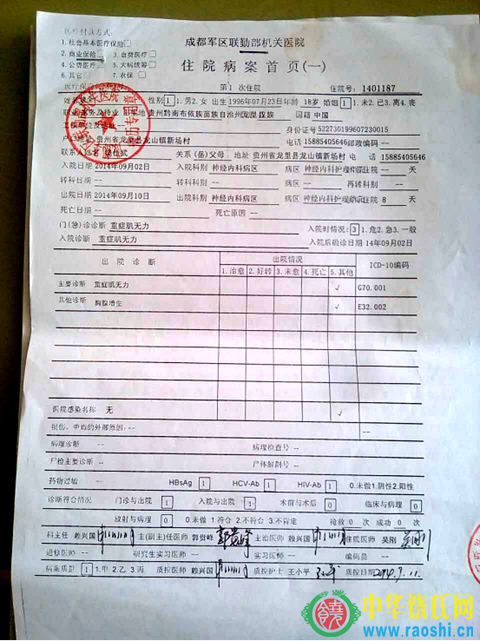 医疗付款方式:
1.社会基本医疗保险 3.自费医疗
2.商业保险 5.大病统筹
4.公费医疗
6.其它 7.农保
成都军区联勤部机关医院
住院病案首页(一)
第1次住院 住院号: 1401187
性别 1 1.男2.女 出生 1996年07月23日 年龄 18岁 婚姻 1 1.未2.已3.离4.丧
贵州黔南布依族苗族自治州龙里 族 国籍 中国
身份证号 522730199607230015
贵州省龙里县龙山镇新场村 邮政编码 -- 电话 15885405646
联系人 关系(岳)父母 地址 贵州省龙里县龙山镇新场村 电话 15885405646
入院日期 2014年09月02日 入院科别 神经内科病区 病区 神经内科护理 住院 -- 天
转科日期 -- 转科科别 -- 病区 -- 再转科别 --
出院日期 2014年09月10日 出院科别 神经内科病区 病区 神经内科护理 住院 8 天
死亡日期 -- 死亡原因 --
门(急)诊诊断 重症肌无力 入院时情况: 3 1.危2.急3.一般
入院诊断 重症肌无力 入院后确诊日期 14年09月02日
出院诊断 出院情况 ICD-10编码
1.治愈 2.好转 3.未愈 4.死亡 5.其他
主要诊断 重症肌无力 ✓ G70.001
其他诊断 胸腺增生 ✓ E32.002
医院感染名称 无 ✓
损伤、中毒的外部原因: --
病理诊断 -- 病理检查号 --
尸检主要诊断 -- 尸体解剖号 --
药物过敏 -- HBsAg 1 HCV-Ab 1 HIV-Ab 1 0.未做1.阴性2.阳性
诊断符合情况 门诊与出院 1 入院与出院 1 术前与术后 0 临床与病理 0
放射与病理 0 0.未做 1.符合 2.不符合 3.不肯定 抢救 0 次 成功 0 次
科主任 赖兴国 主(副)主任医师 郭贵峰 主治医师 赖兴国 住院医师 吴刚
进修医师 -- 研究生实习医师 -- 实习医师 -- 编码员 --
病案质量 1 1.甲2.乙3.丙 质控医师 赖兴国 质控护士 王小平 质控日期 2014.9.11
中华饶氏网
www.raoshi.cn